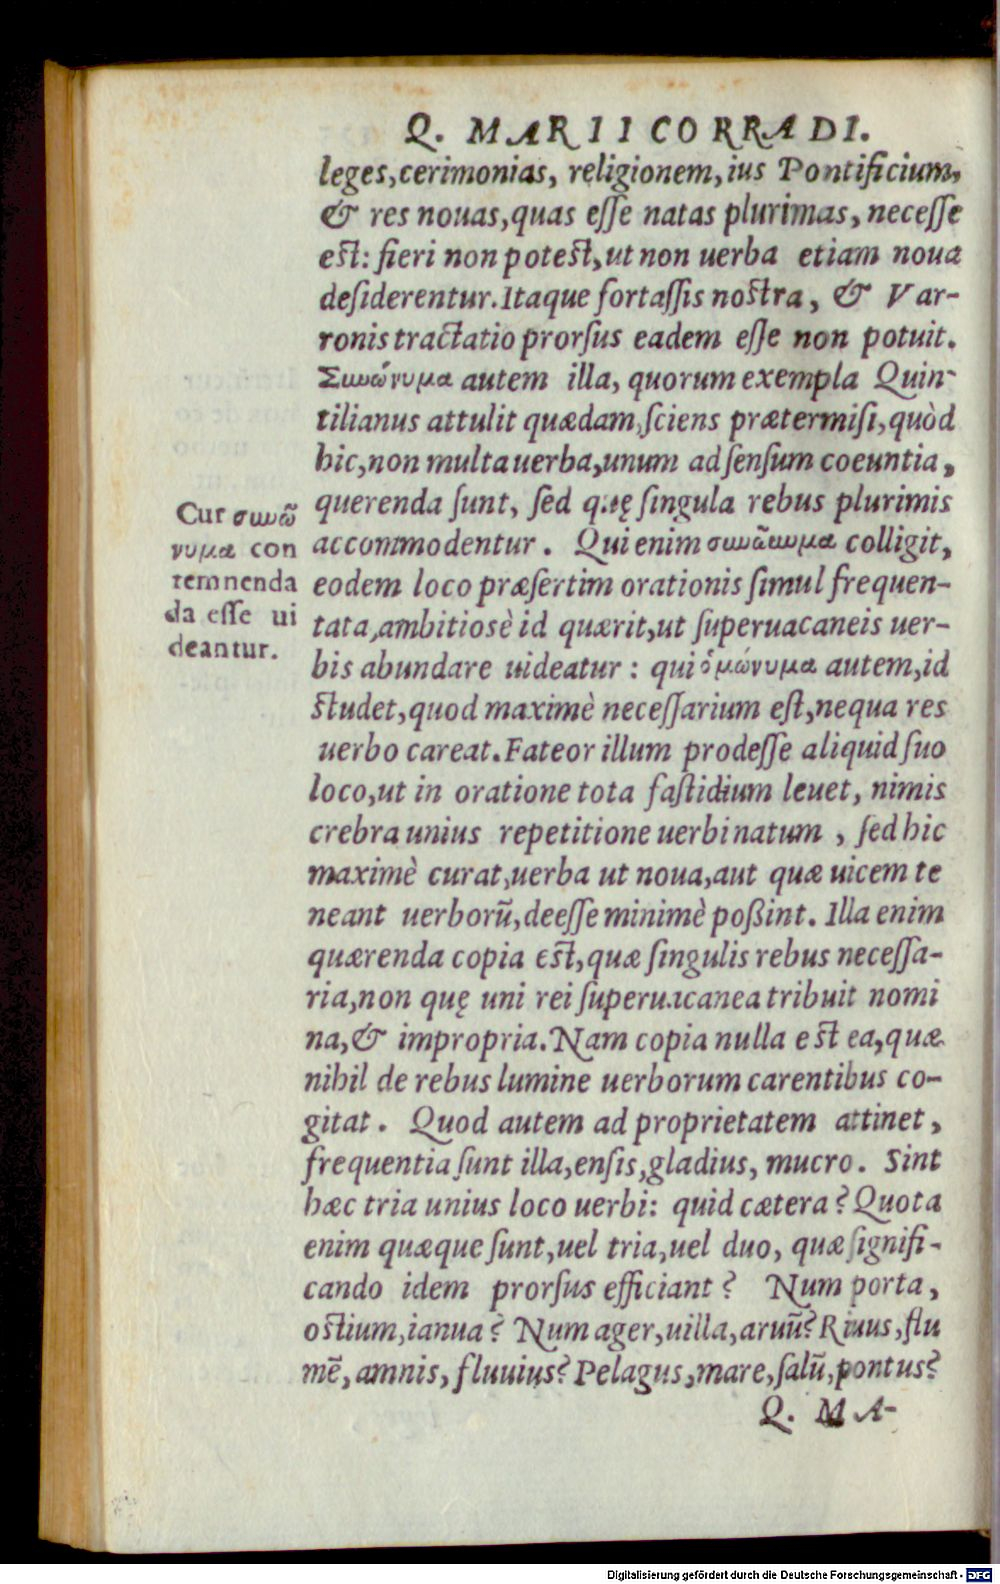 Q. MARII CORRADI.
leges, cerimonias, religionem, ius Pontificium,
& res nouas, quas eſſe natas plurimas, neceſſe
eſt: fieri non poteſt, ut non uerba etiam noua
deſiderentur. Itaque fortaſſis noſtra, & Var-
ronis tractatio prorſus eadem eſſe non potuit.
Συνώνυμα autem illa, quorum exempla Quin-
tilianus attulit quædam, ſciens prætermiſi, quòd
hic, non multa uerba, unum ad ſenſum coeuntia,
querenda ſunt, ſed quę ſingula rebus plurimis
accommodentur. Qui enim συνώνυμα colligit,
eodem loco præſertim orationis ſimul frequen-
tata, ambitiosè id quærit, ut ſuperuacaneis uer-
bis abundare uideatur: qui ὁμώνυμα autem, id
ſtudet, quod maximè neceſſarium eſt, nequa res
uerbo careat. Fateor illum prodeſſe aliquid ſuo
loco, ut in oratione tota faſtidium leuet, nimis
crebra unius repetitione uerbi natum, ſed hic
maximè curat, uerba ut noua, aut quæ uicem te
neant uerborũ, deeſſe minimè poßint. Illa enim
quærenda copia eſt, quæ ſingulis rebus neceſſa-
ria, non quę uni rei ſuperuacanea tribuit nomi
na, & impropria. Nam copia nulla eſt ea, quæ
nihil de rebus lumine uerborum carentibus co-
gitat. Quod autem ad proprietatem attinet,
frequentia ſunt illa, enſis, gladius, mucro. Sint
hæc tria unius loco uerbi: quid cætera? Quota
enim quæque ſunt, uel tria, uel duo, quæ ſignifi-
cando idem prorſus efficiant? Num porta,
oſtium, ianua? Num ager, uilla, aruũ? Riuus, flu
mẽ, amnis, fluuius? Pelagus, mare, ſalũ, pontus?
Q. MA-
Cur συνώ
νυμα con
temnenda
da eſſe ui
deantur.
Digitalisierung gefördert durch die Deutsche Forschungsgemeinschaft - DFG